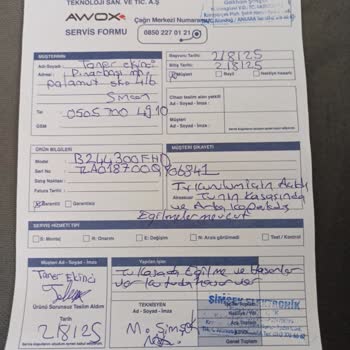 TEKNOLOJİ SAN. VE TİC. A.Ş
AWOX
SERVİS FORMU
Çağrı Merkezi Numarası
0850 227 01 21
MÜŞTERİNİN
Adı-Soyadı : Taner Ekinci
Adres : Pınarbaşı mh.
palamut sk. 4/6
Simav
Tel : 0505 700 4910
GSM :
Başvuru Tarihi : 2/8/25
Bitiş Tarihi : 2/8/25
Müşteri
Bayi
Nakliye hasarlı
Cihazı teslim alan yetkili
Adı - Soyadı - İmza
ÜRÜN BİLGİLERİ
Model : B244300FHD
Seri No :
Satış Noktası :
Fatura Tarihi :
Garantili
Garantisiz
MÜŞTERİ ŞİKAYETİ
Tv kurulum için Açtık
Aksesuar : Tv'nin Kasasında
ve Arka kapakta
Eğrilmeler mevcut
SERVİS HİZMET TİPİ
E: Montaj
R: Onarım
E: Değişim
N: Arıza görülmedi
Test / Kontrol
Müşteri Adı - Soyadı - İmza
Taner Ekinci
Ürünü Sorunsuz Teslim Aldım
Tarih
2/8/25
Yapılan İşler:
Tv Kasada Eğilme ve Hasarlar
var
TEKNİSYEN
Adı - Soyadı - İmza
M. Şimşek
ŞİMŞEK ELEKTRONİK
Genel Toplam